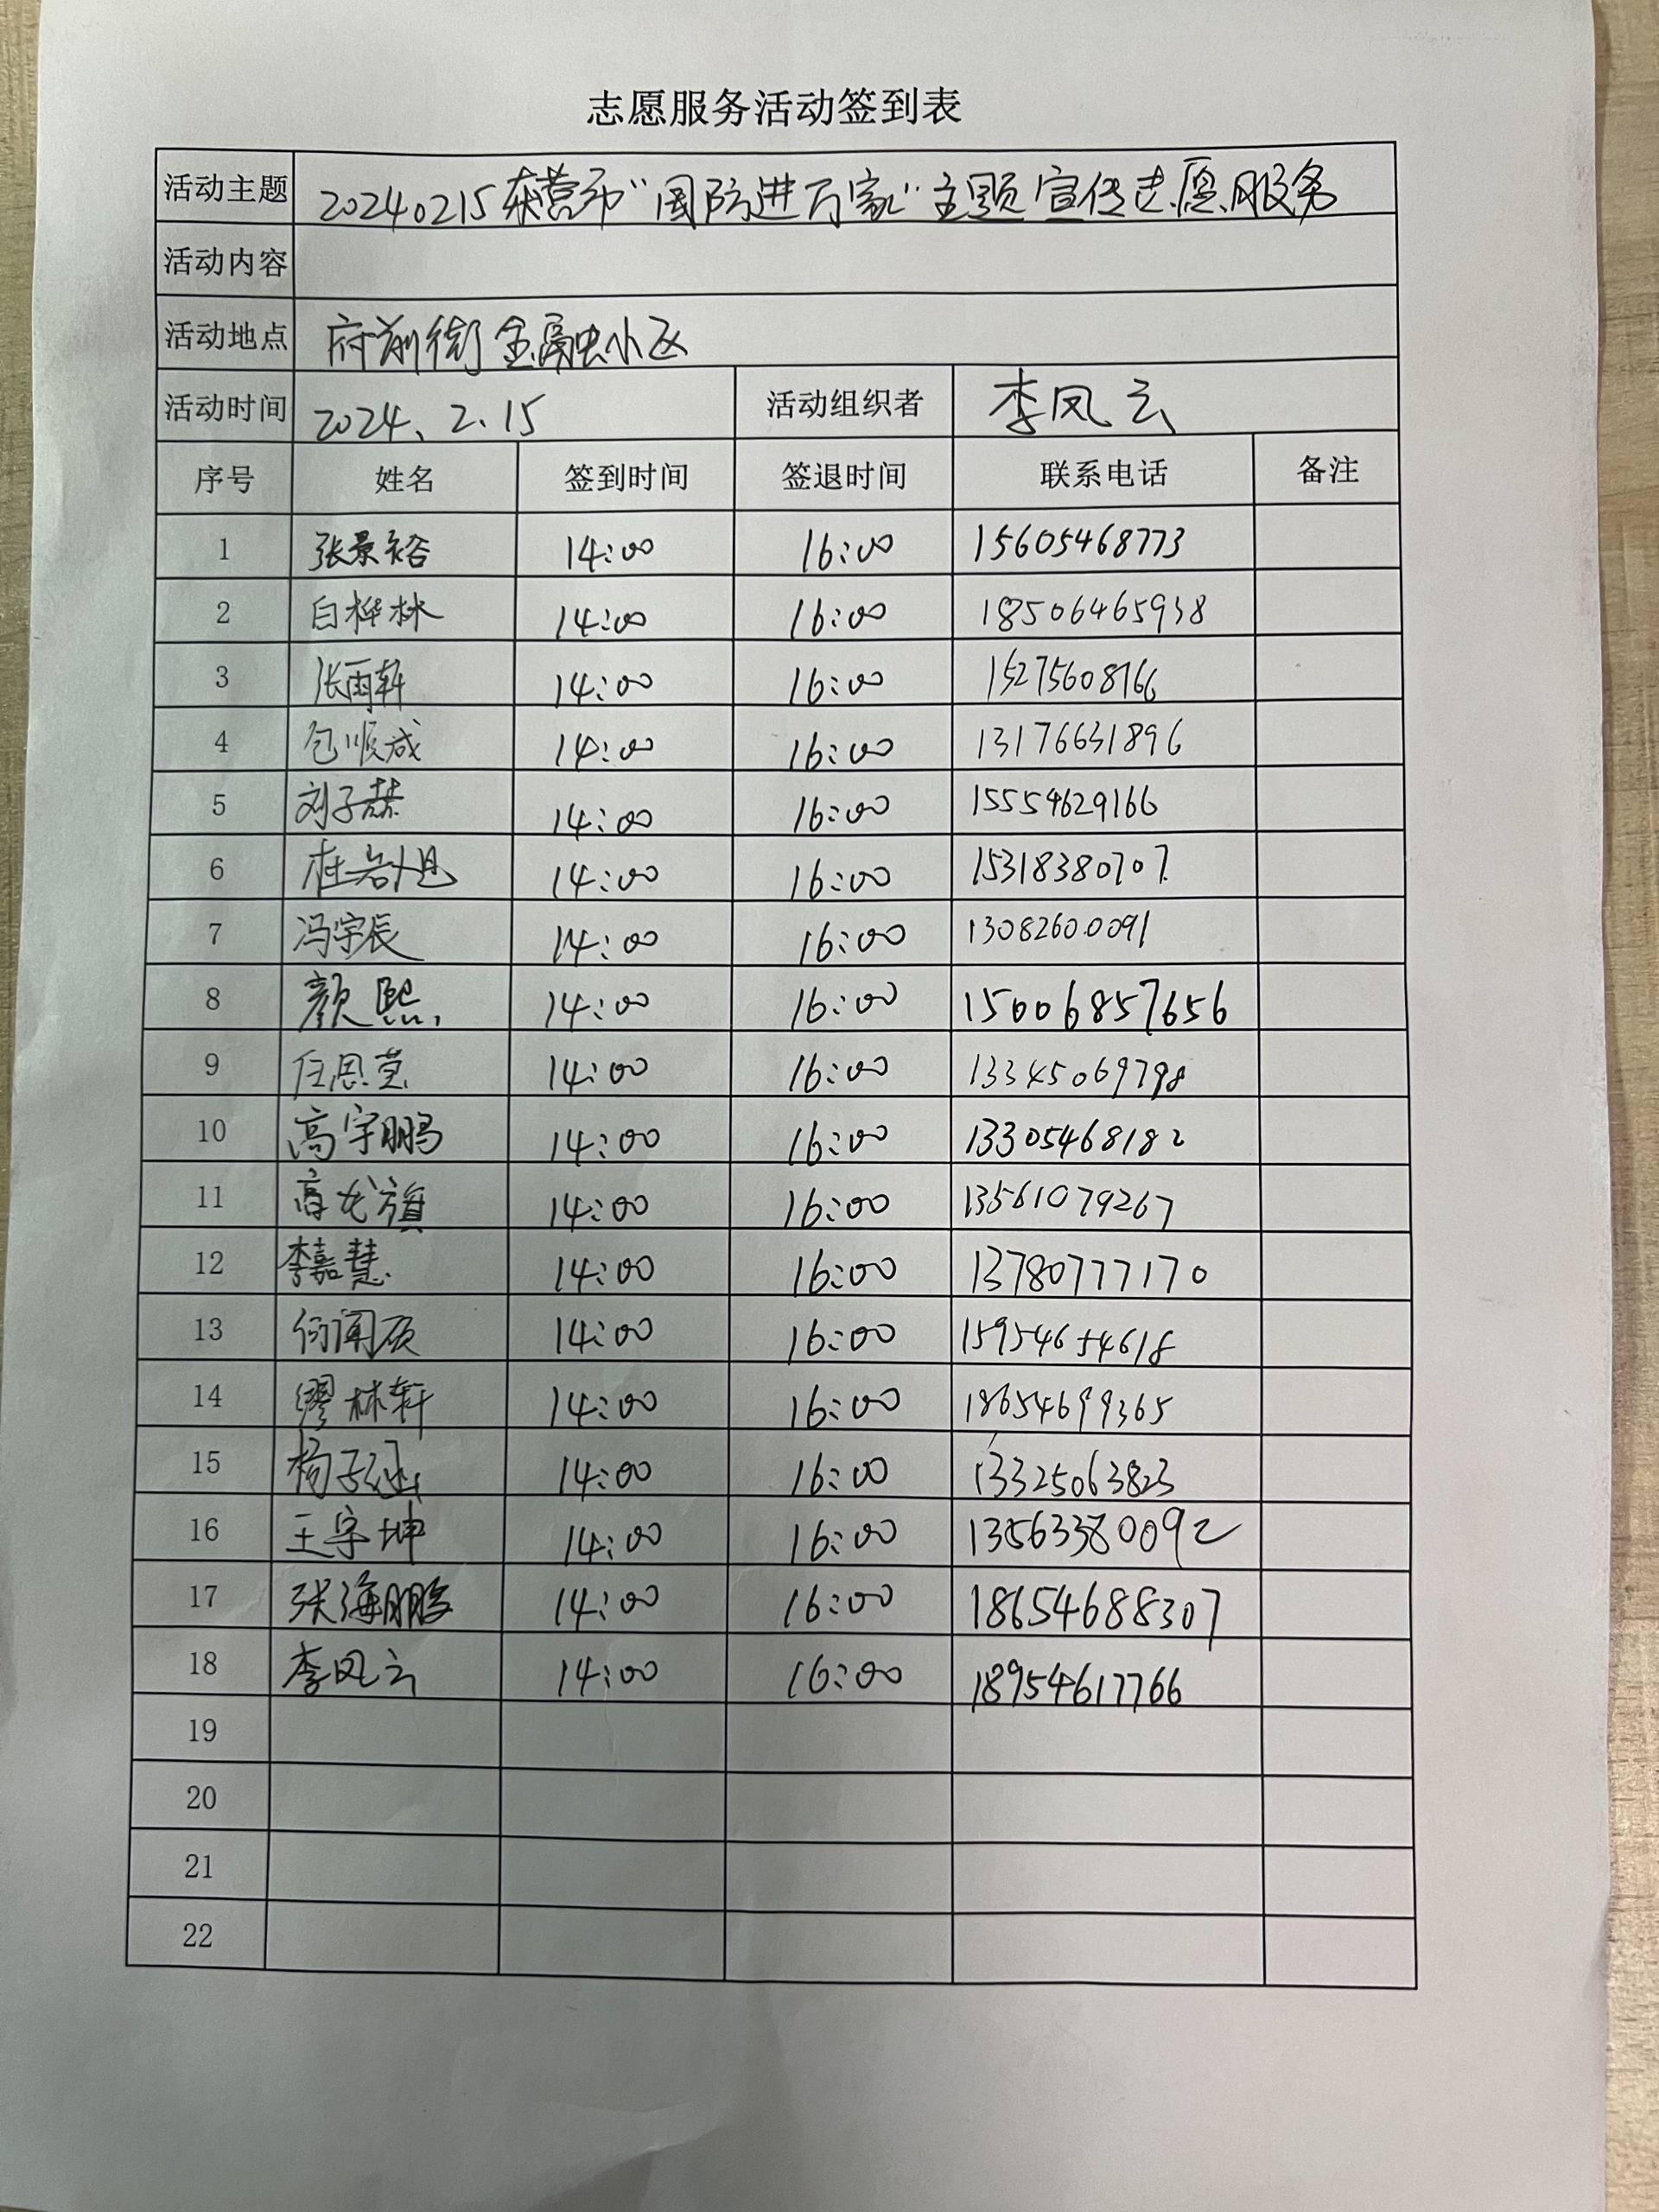 志愿服务活动签到表
活动主题 20240215东营市"国防进万家"主题宣传志愿服务
活动内容
活动地点 府前街金融小区
活动时间 2024、2、15 活动组织者 李凤云
序号 姓名 签到时间 签退时间 联系电话 备注
1 张景裕 14:00 16:00 15605468773
2 白桦林 14:00 16:00 18506465938
3 张雨轩 14:00 16:00 15275608766
4 包顺成 14:00 16:00 13176631896
5 刘子赫 14:00 16:00 15554629166
6 杜岩旭 14:00 16:00 15318380707
7 冯宇辰 14:00 16:00 13082600091
8 颜熙 14:00 16:00 15006857656
9 任思莹 14:00 16:00 13345069798
10 高宇鹏 14:00 16:00 13305468182
11 高龙旗 14:00 16:00 13561079267
12 李嘉慧 14:00 16:00 13780777170
13 14:00 16:00 15954654618
14 缪林轩 14:00 16:00 18654699365
15 杨子涵 14:00 16:00 13325063823
16 王宇坤 14:00 16:00 13563380092
17 张海鹏 14:00 16:00 18654688307
18 李凤云 14:00 16:00 18954617766
19
20
21
22